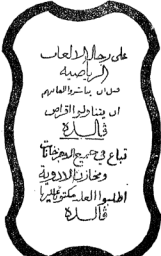 على رجال الالعاب
الرياضية
قبل ان يباشروا العابهم
ان يتناولوا اقراص
ڤالدة
تباع في جميع الاجزاخانات
ومخازن الادوية
اطلبوا العلبة مكتوب عليها
ڤالدة